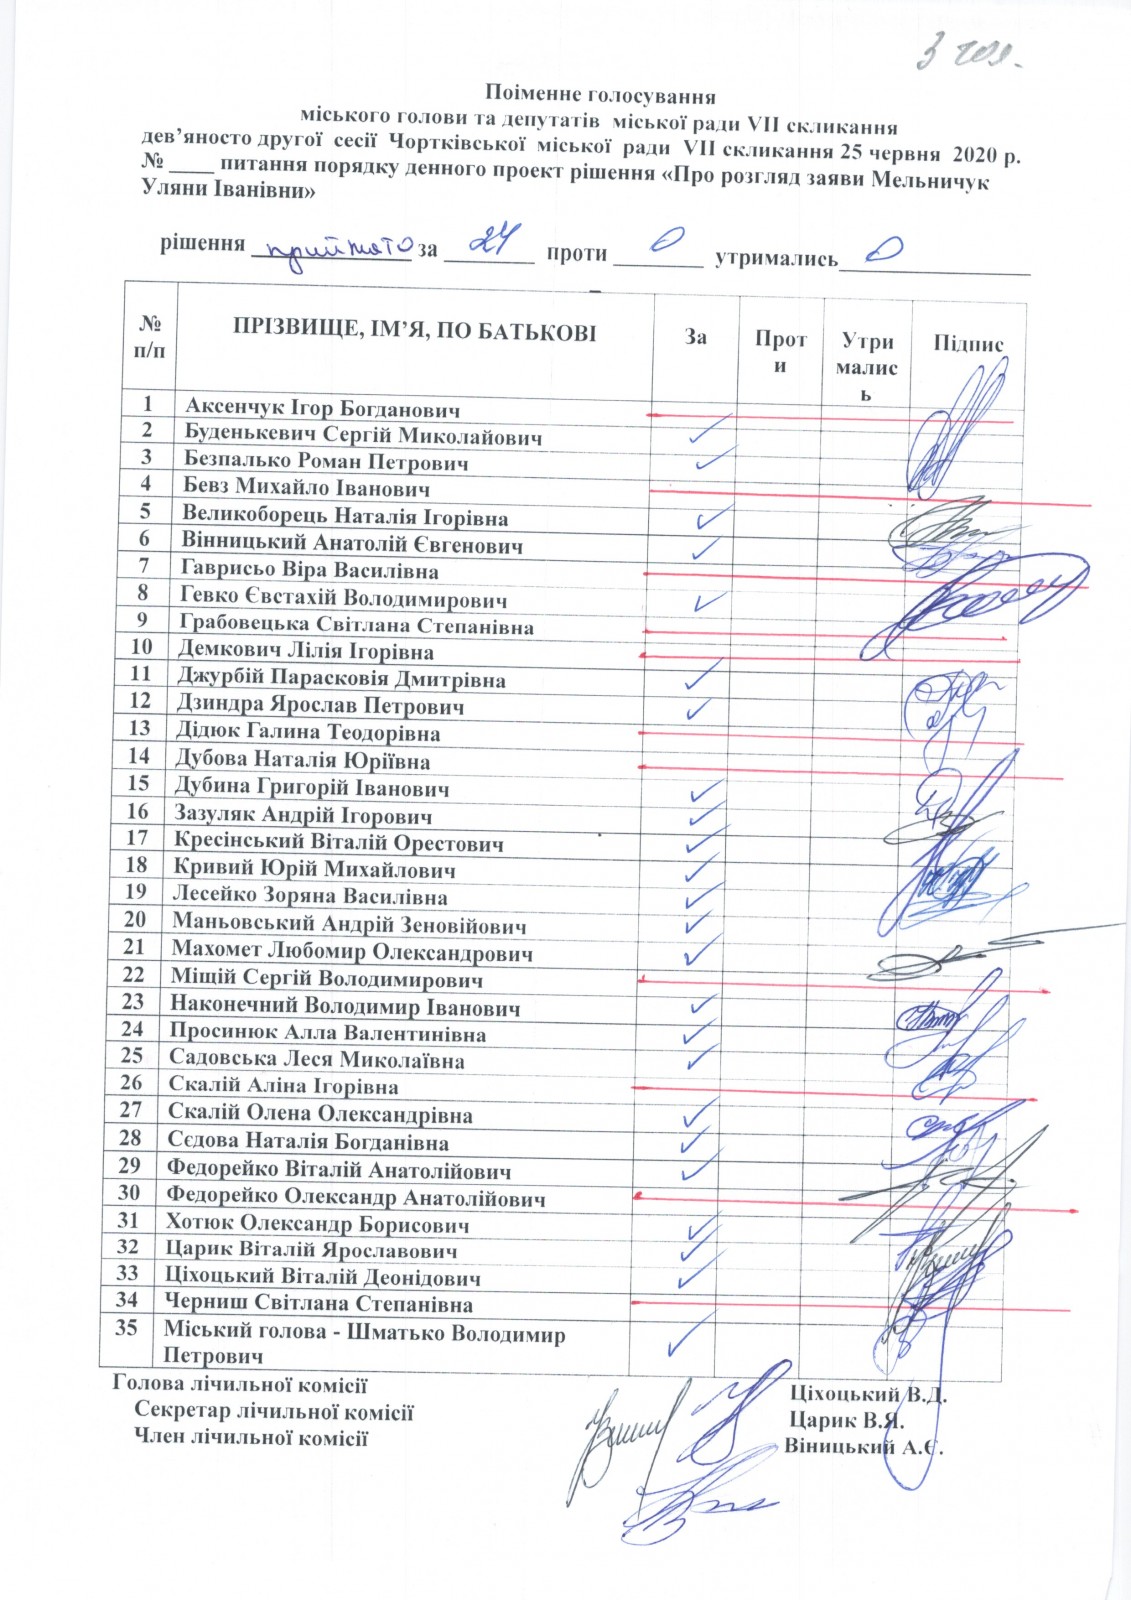 З гол.
Поіменне голосування
міського голови та депутатів міської ради VII скликання
дев’яносто другої сесії Чортківської міської ради VII скликання 25 червня 2020 р.
№ ____ питання порядку денного проект рішення «Про розгляд заяви Мельничук
Уляни Іванівни»
рішення прийнято за 24 проти 0 утримались 0
№ п/п ПРІЗВИЩЕ, ІМ’Я, ПО БАТЬКОВІ За Проти Утрималсь Підпис
1 Аксенчук Ігор Богданович
2 Буденькевич Сергій Миколайович ✓
3 Безпалько Роман Петрович ✓
4 Бевз Михайло Іванович
5 Великоборець Наталія Ігорівна ✓
6 Вінницький Анатолій Євгенович ✓
7 Гаврисьо Віра Василівна
8 Гевко Євстахій Володимирович ✓
9 Грабовецька Світлана Степанівна
10 Демкович Лілія Ігорівна
11 Джурбій Парасковія Дмитрівна ✓
12 Дзиндра Ярослав Петрович ✓
13 Дідюк Галина Теодорівна
14 Дубова Наталія Юріївна
15 Дубина Григорій Іванович ✓
16 Зазуляк Андрій Ігорович ✓
17 Кресінський Віталій Орестович ✓
18 Кривий Юрій Михайлович ✓
19 Лесейко Зоряна Василівна ✓
20 Маньовський Андрій Зеновійович ✓
21 Махомет Любомир Олександрович ✓
22 Міщій Сергій Володимирович
23 Наконечний Володимир Іванович ✓
24 Просинюк Алла Валентинівна ✓
25 Садовська Леся Миколаївна ✓
26 Скалій Аліна Ігорівна
27 Скалій Олена Олександрівна ✓
28 Сєдова Наталія Богданівна ✓
29 Федорейко Віталій Анатолійович ✓
30 Федорейко Олександр Анатолійович
31 Хотюк Олександр Борисович ✓
32 Царик Віталій Ярославович ✓
33 Ціхоцький Віталій Деонідович ✓
34 Черниш Світлана Степанівна
35 Міський голова - Шматько Володимир ✓
Петрович
Голова лічильної комісії Ціхоцький В.Д.
Секретар лічильної комісії Царик В.Я.
Член лічильної комісії Віницький А.Є.